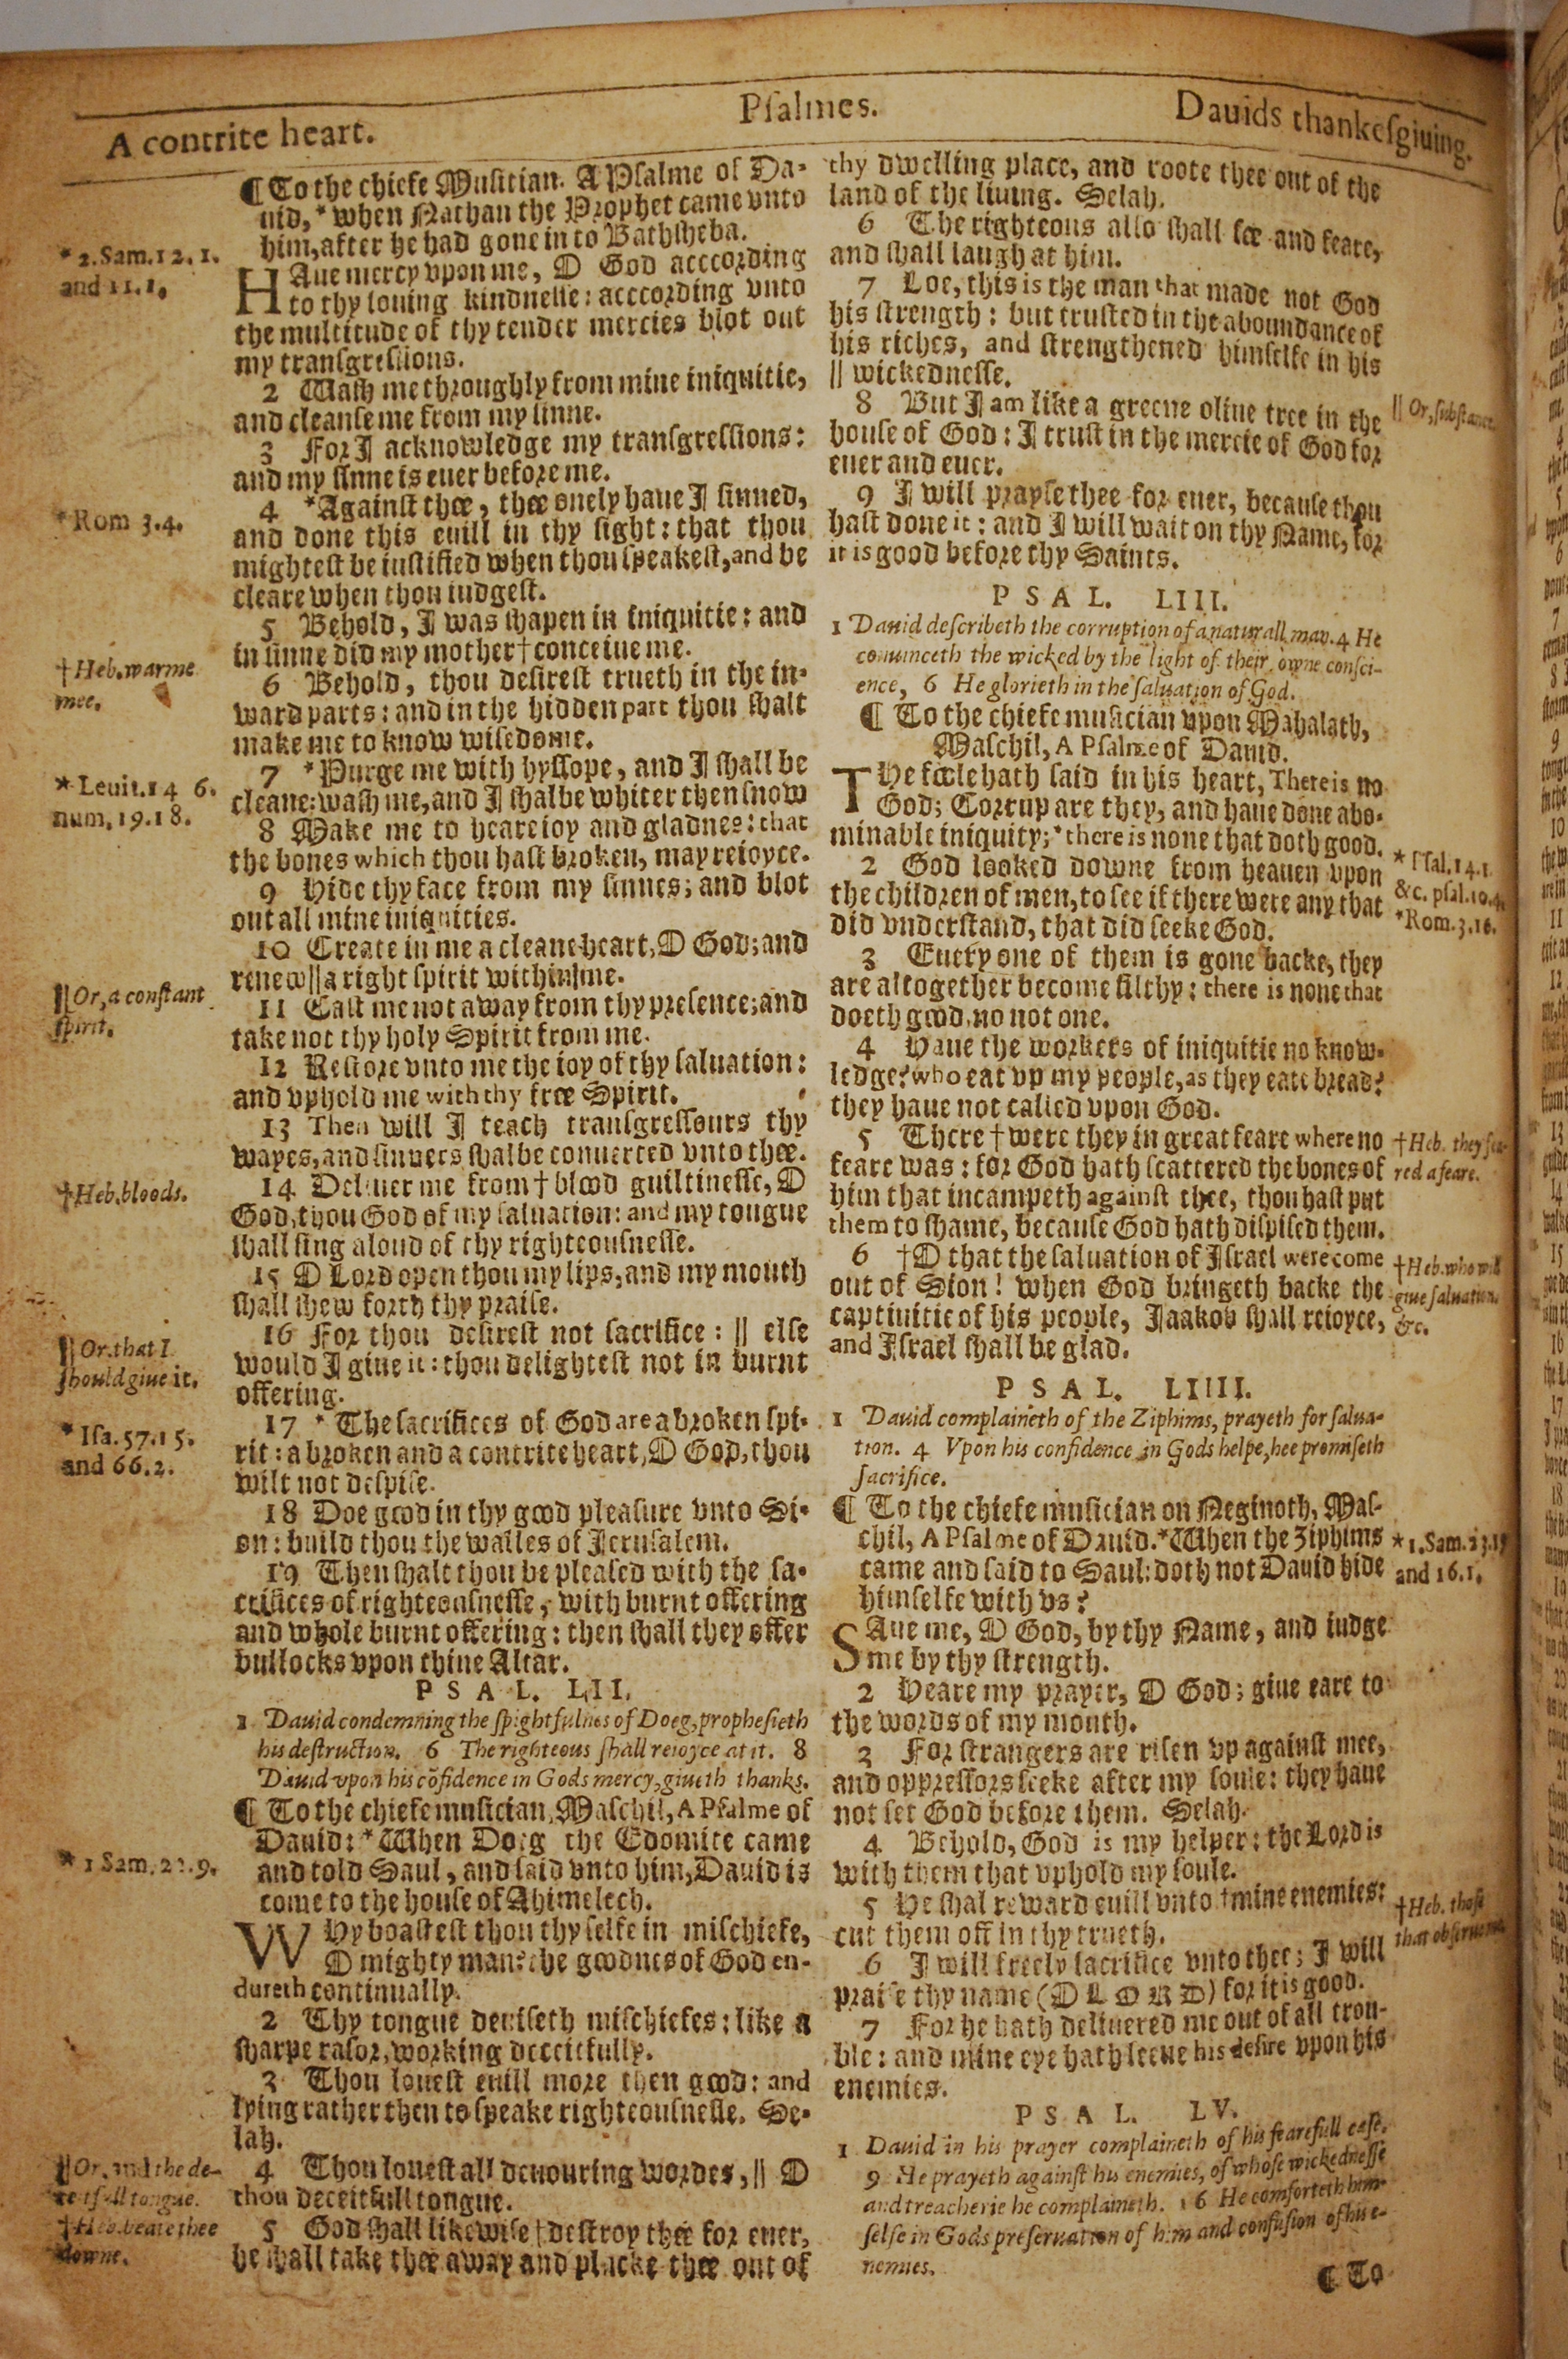 A contrite heart.
Pſalmes.
Dauids thankeſgiuing.
¶ To the chiefe Muſitian. A Pſalme of Da-
uid, * when Nathan the Prophet came vnto
him, after he had gone in to Bathſheba.
* 2. Sam. 12. 1.
and 11. 1.
HAue mercy vpon me, O God acccording
to thy louing kindneſſe: acccording vnto
the multitude of thy tender mercies blot out
my tranſgreſſions.
2 Waſh me throughly from mine iniquitie,
and cleanſe me from my ſinne.
3 For I acknowledge my tranſgreſſions:
and my ſinne is euer before me.
4 *Againſt thee, thee onely haue I ſinned,
* Rom 3.4.
and done this euill in thy ſight: that thou
mighteſt be iuſtified when thou ſpeakeſt, and be
cleare when thou iudgeſt.
5 Behold, I was ſhapen in iniquitie: and
in ſinne did my mother † conceiue me.
† Heb. warme
mee.
6 Behold, thou deſireſt trueth in the in-
ward parts: and in the hidden part thou ſhalt
make me to know wiſedome.
7 *Purge me with hyſſope, and I ſhall be
* Leuit. 14 6.
num, 19.18.
cleane: waſh me, and I ſhalbe whiter then ſnow
8 Make me to heare ioy and gladnes: that
the bones which thou haſt broken, may reioyce.
9 Hide thy face from my ſinnes; and blot
out all mine iniquities.
10 Create in me a cleane heart, O God; and
renew || a right ſpirit within me.
|| Or, a conſtant
ſpirit.
11 Caſt me not away from thy preſence; and
take not thy holy Spirit from me.
12 Reſtore vnto me the ioy of thy ſaluation:
and vphold me with thy free Spirit.
13 Then will I teach tranſgreſſours thy
wayes, and ſinners ſhalbe conuerted vnto thee.
14 Deliuer me from † blood guiltineſſe, O
† Heb. bloods.
God, thou God of my ſaluation: and my tongue
ſhall ſing aloud of thy righteouſneſſe.
15 O Lord open thou my lips, and my mouth
ſhall ſhew forth thy praiſe.
16 For thou deſireſt not ſacrifice: || elſe
|| Or, that I
ſhould giue it.
would I giue it: thou delighteſt not in burnt
offering.
17 * The ſacrifices of God are a broken ſpi-
* Iſa. 57.15.
and 66.2.
rit: a broken and a contrite heart, O God, thou
wilt not deſpiſe.
18 Doe good in thy good pleaſure vnto Si-
on: build thou the walles of Jeruſalem.
19 Then ſhalt thou be pleaſed with the ſa-
crifices of righteouſneſſe, with burnt offering
and whole burnt offering: then ſhall they offer
bullocks vpon thine Altar.
PSAL. LII.
1 Dauid condemning the ſpightfulnes of Doeg, propheſieth
his deſtruction. 6 The righteous ſhall reioyce at it. 8
Dauid vpon his cõfidence in Gods mercy, giueth thanks.
¶ To the chiefe muſician, Maſchil, A Pſalme of
Dauid: * When Doeg the Edomite came
* 1 Sam. 22.9.
and told Saul, and ſaid vnto him, Dauid is
come to the houſe of Ahimelech.
WHy boaſteſt thou thy ſelfe in miſchiefe,
O mighty man? the goodnes of God en-
dureth continually.
2 Thy tongue deuiſeth miſchiefes: like a
ſharpe raſor, working deceitfully.
3 Thou loueſt euill more then good: and
lying rather then to ſpeake righteouſneſſe. Se-
lah.
4 Thou loueſt all deuouring wordes, || O
|| Or, and the de-
ceitfull tongue.
thou deceitfull tongue.
5 God ſhall likewiſe † deſtroy thee for euer,
† Heb. beate thee
downe.
he ſhall take thee away and plucke thee out of
thy dwelling place, and roote thee out of the
land of the liuing. Selah.
6 The righteous alſo ſhall ſee and feare,
and ſhall laugh at him.
7 Loe, this is the man that made not God
his ſtrength: but truſted in the aboundance of
his riches, and ſtrengthened himſelfe in his
|| wickedneſſe.
|| Or, ſubſtance.
8 But I am like a greene oliue tree in the
houſe of God: I truſt in the mercie of God for
euer and euer.
9 I will prayſe thee for euer, becauſe thou
haſt done it: and I will wait on thy Name, for
it is good before thy Saints.
PSAL. LIII.
1 Dauid deſcribeth the corruption of a naturall man. 4 He
conuinceth the wicked by the light of their owne conſci-
ence, 6 He glorieth in the ſaluation of God.
¶ To the chiefe muſician vpon Mahalath,
Maſchil, A Pſalme of Dauid.
THe foole hath ſaid in his heart, There is no
God; Corrup are they, and haue done abo-
minable iniquity; * there is none that doth good.
* Pſal. 14.1
&c. pſal. 10.4.
*Rom. 3.10.
2 God looked downe from heauen vpon
the children of men, to ſee if there were any that
did vnderſtand, that did ſeeke God.
3 Euery one of them is gone backe, they
are altogether become filthy: there is none that
doeth good, no not one.
4 Haue the workers of iniquitie no know-
ledge? who eat vp my people, as they eate bread?
they haue not called vpon God.
5 There † were they in great feare where no
† Heb. they fea-
red a feare.
feare was: for God hath ſcattered the bones of
him that incampeth againſt thee, thou haſt put
them to ſhame, becauſe God hath diſpiſed them.
6 † O that the ſaluation of Iſrael were come
† Heb. who will
giue ſaluation,
&c.
out of Sion! when God bringeth backe the
captiuitie of his people, Jaakob ſhall reioyce,
and Iſrael ſhall be glad.
PSAL. LIIII.
1 Dauid complaineth of the Ziphims, prayeth for ſalua-
tion. 4 Vpon his confidence in Gods helpe, hee promiſeth
ſacrifice.
¶ To the chiefe muſician on Neginoth, Maſ-
chil, A Pſalme of Dauid. * When the Ziphims
* 1. Sam. 23.19
and 16.1.
came and ſaid to Saul: doth not Dauid hide
himſelfe with vs?
SAue me, O God, by thy Name, and iudge
me by thy ſtrength.
2 Heare my prayer, O God; giue eare to
the words of my mouth.
3 For ſtrangers are riſen vp againſt mee,
and oppreſſors ſeeke after my ſoule: they haue
not ſet God before them. Selah.
4 Behold, God is my helper: the Lord is
with them that vphold my ſoule.
5 He ſhal reward euill vnto † mine enemies:
† Heb. thoſe
that obſerue
cut them off in thy trueth.
6 I will freely ſacrifice vnto thee; I will
praiſe thy name (O LORD) for it is good.
7 For he hath deliuered me out of all trou-
ble: and mine eye hath ſeene his deſire vpon his
enemies.
PSAL. LV.
1 Dauid in his prayer complaineth of his fearefull caſe.
9 He prayeth againſt his enemies, of whoſe wickedneſſe
and treacherie he complaineth. 16 He comforteth him-
ſelfe in Gods preſeruation of him and confuſion of his e-
nemies.
¶ To